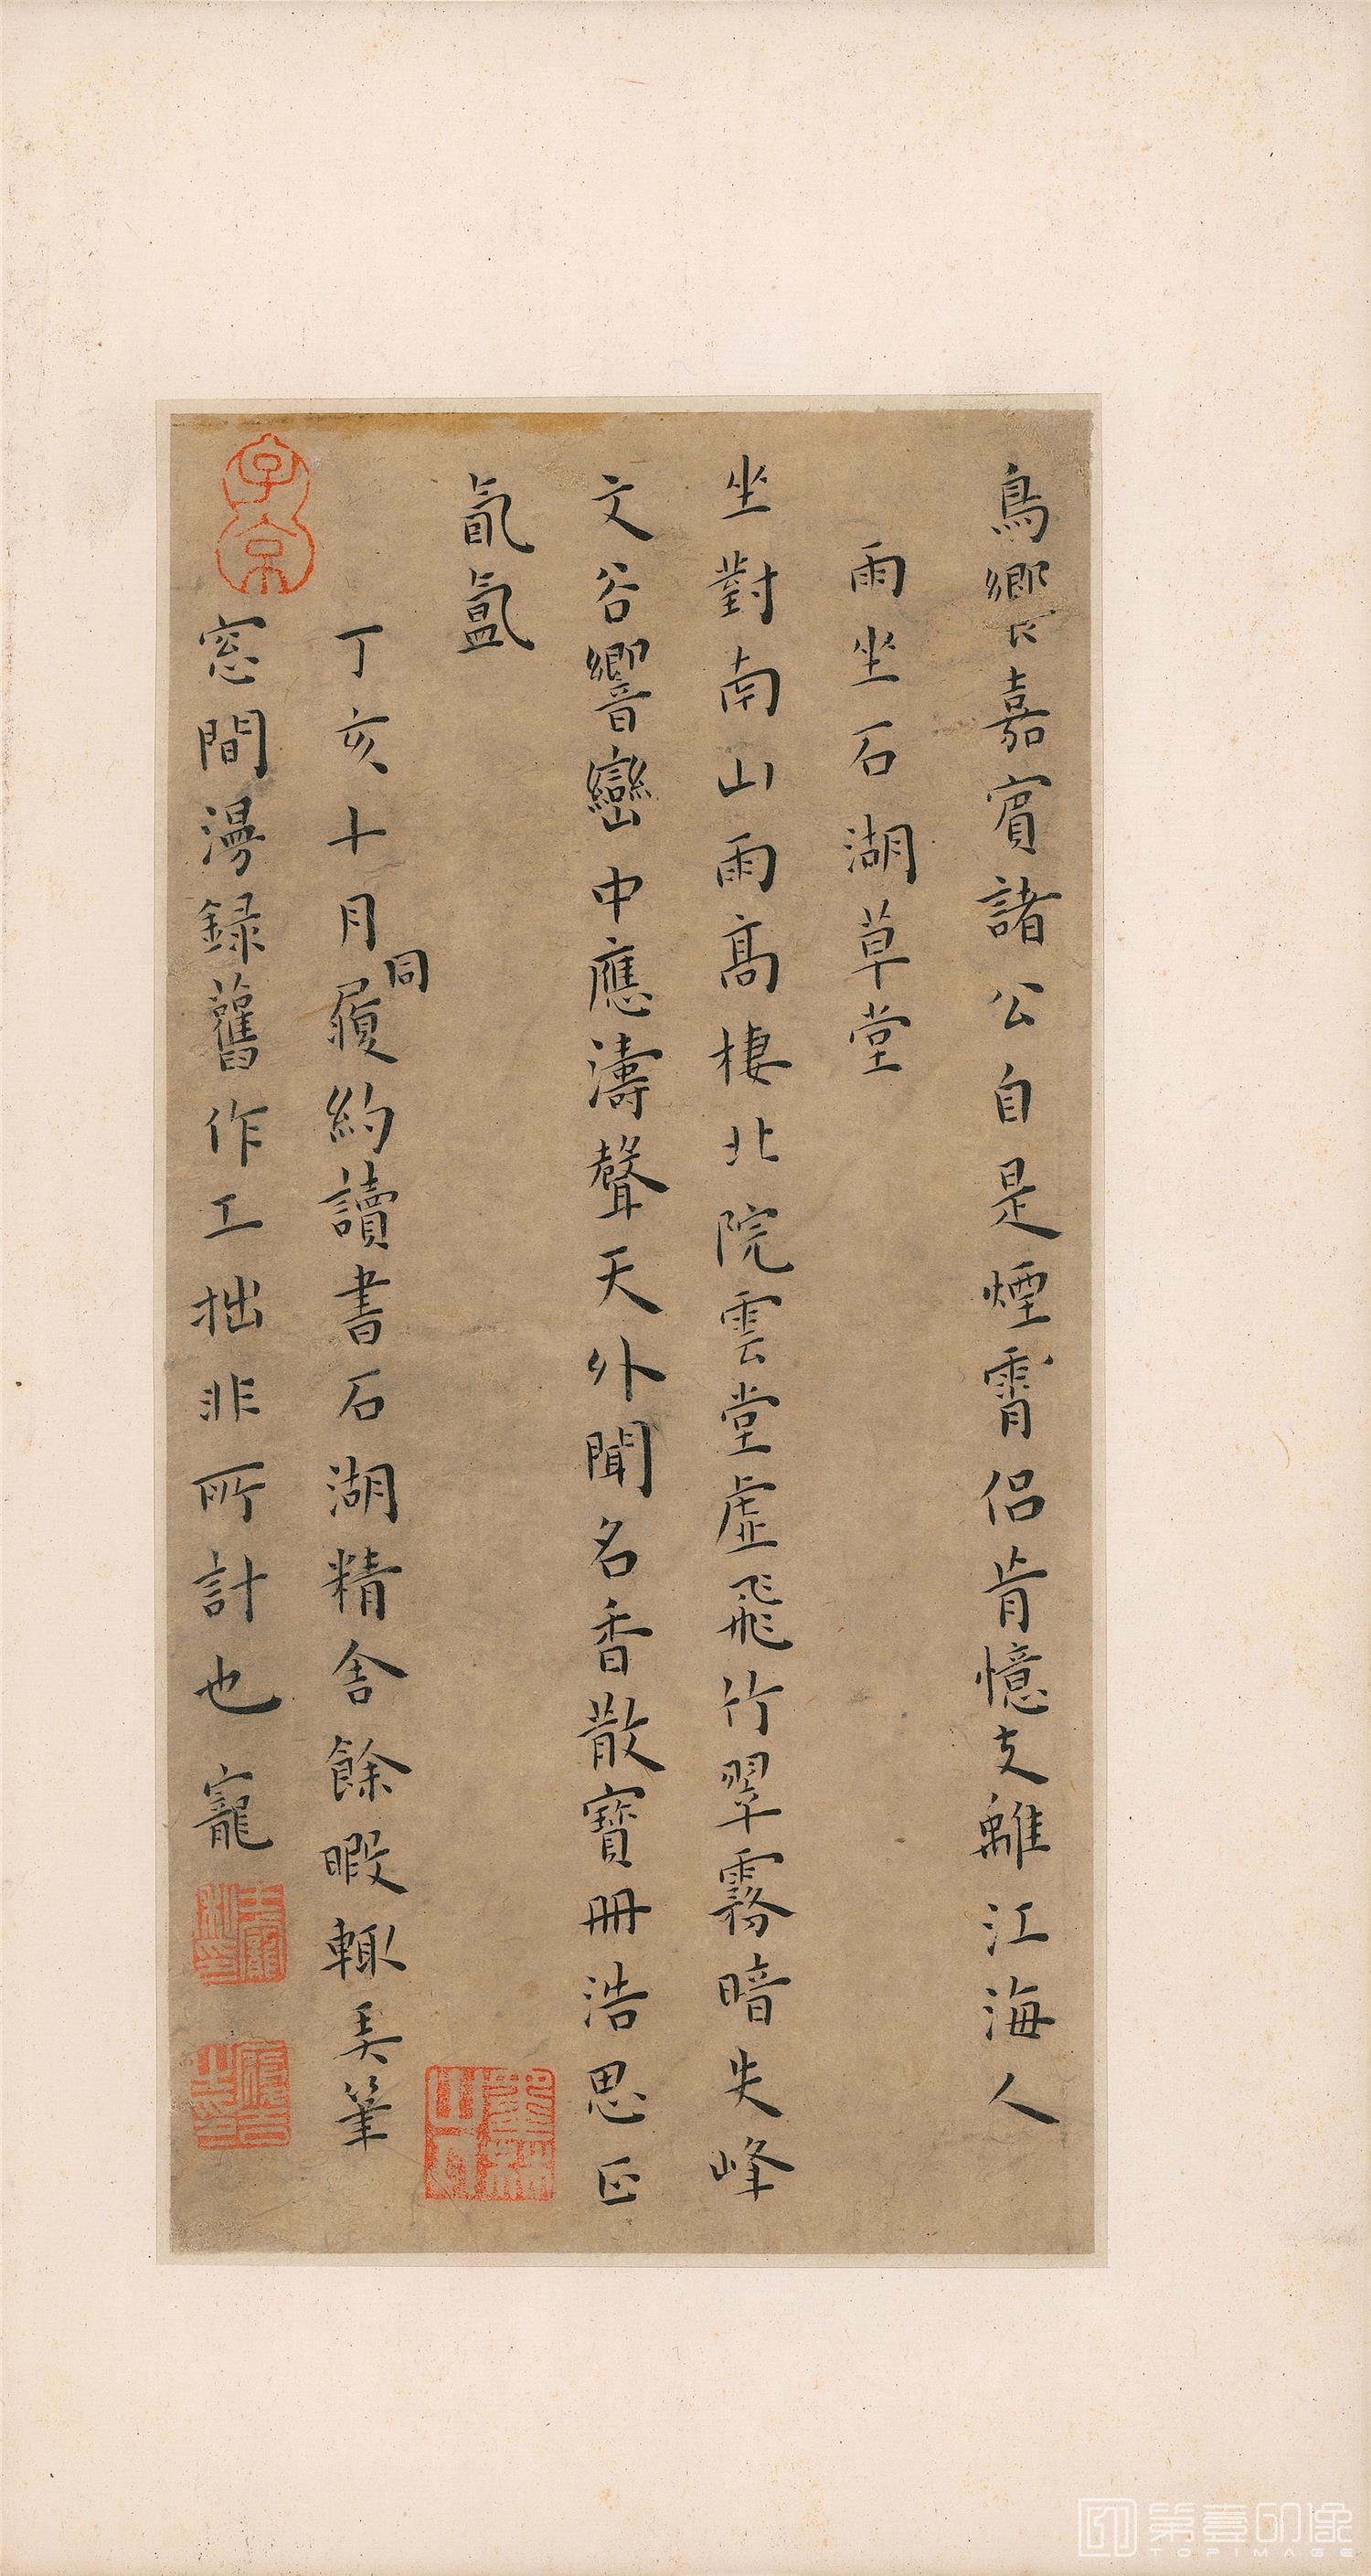 鳥響嘉賓諸公自是煙霄侶肯憶支離江海人
雨坐石湖草堂
坐對南山雨高棲北院雲堂虛飛竹翠霧暗失峰
文谷響巒中應濤聲天外聞名香散寶冊浩思正
氤氳
丁亥十月同履約讀書石湖精舍餘暇輒弄筆
窓間漫録舊作工拙非所計也寵
子京
第壹印像
TOPIMAGE